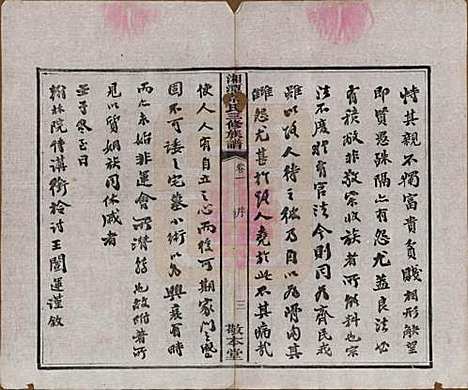 恃其親不獨富貴貧賤相形觖望
即賢愚殊隔亦有怨尤蓋良法必
有積故非敬宗收族者所儗料也宗
法不廢時有官法今則同為齊民或
以敌人待之彼乃自以為骨肉而
讎怨尤甚於敌人堯於此不其病哉
湘潭 氏三修族譜
卷一
序
三
敬本堂
使人人有自立之心而後可期家門之盛
固不可諉之宅墓小術以為興衰有時
而亦未始非運會所潛移也敘附著所
見以質姻族同休戚者
壬子冬至日
翰林院侍講銜檢討王闓運謹敘